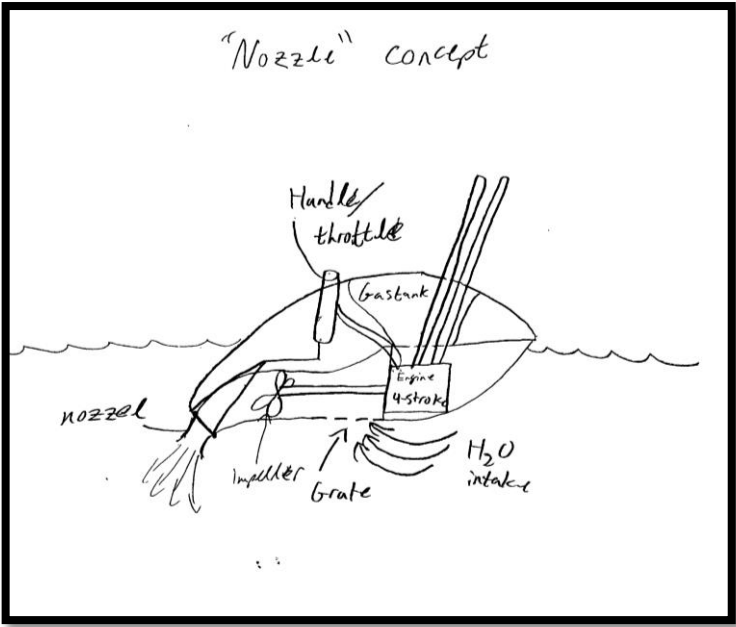 "Nozzle" concept
Handle/
throttle
Gastank
Engine
4-stroke
nozzel
impeller
Grate
H₂O
intake